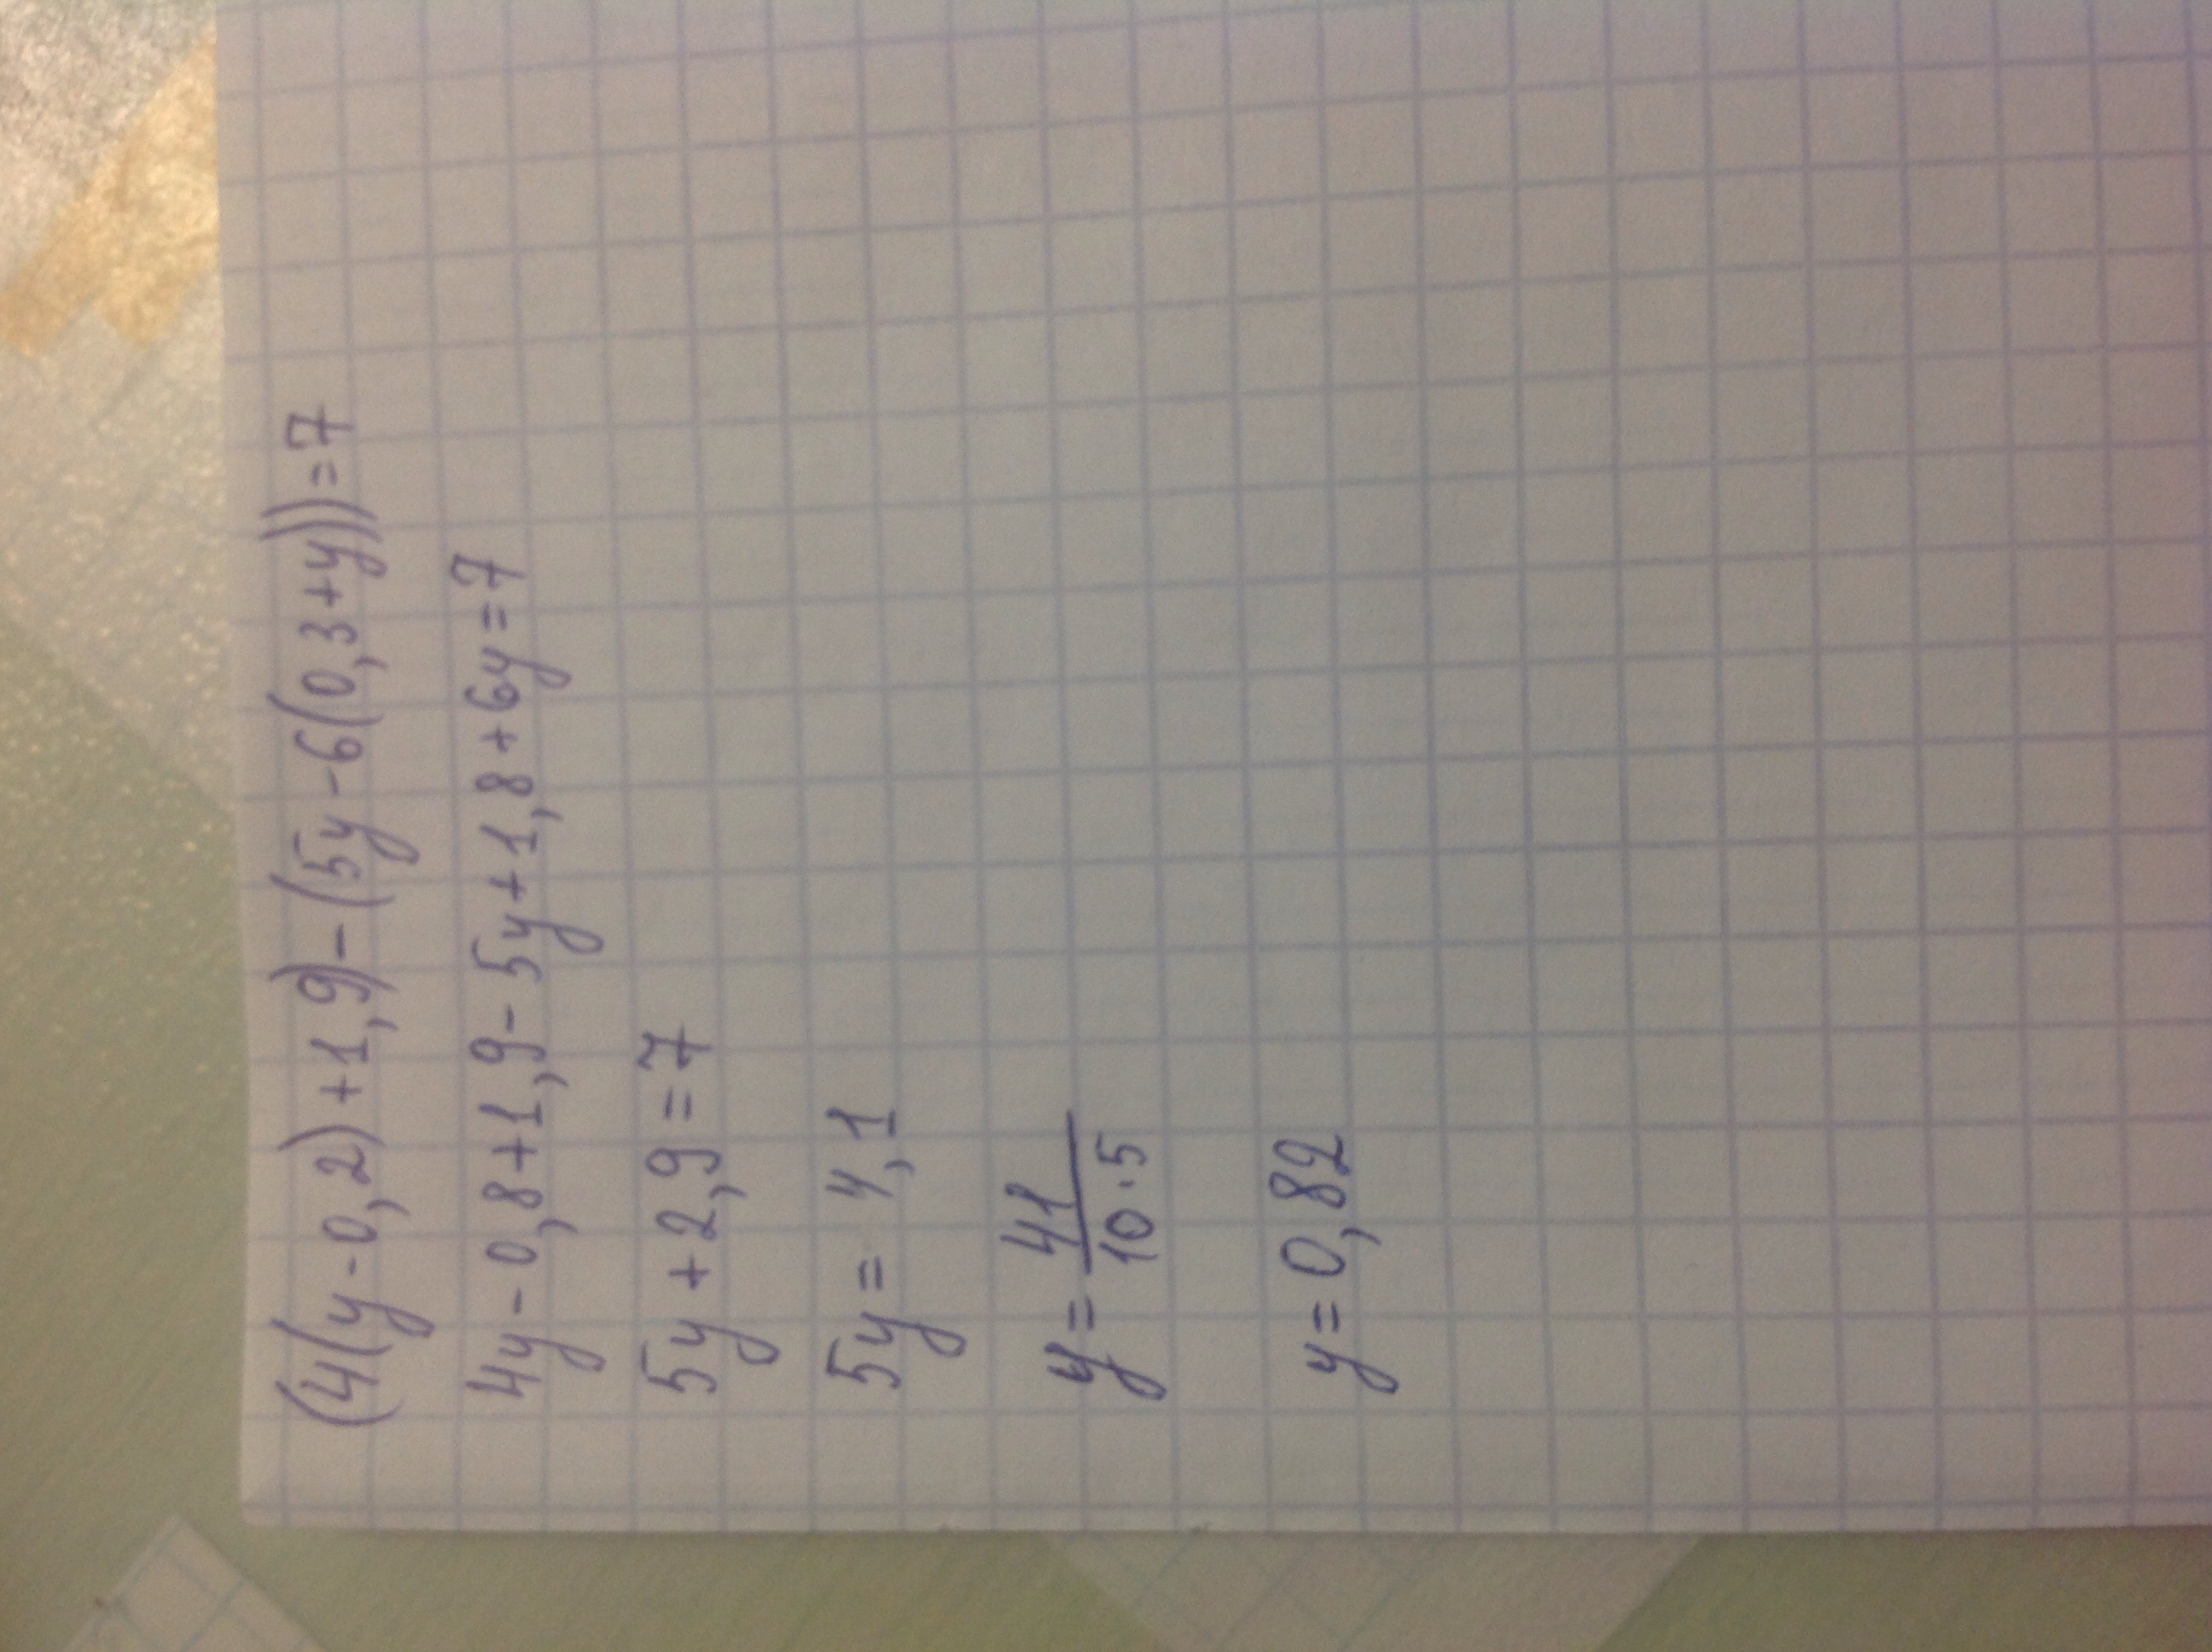 (4(y-0,2)+1,9)-(5y-6(0,3+y)))=7
4y-0,8+1,9-5y+1,8+6y=7
5y+2,9=7
5y=4,1
y=41/10·5
y=0,82